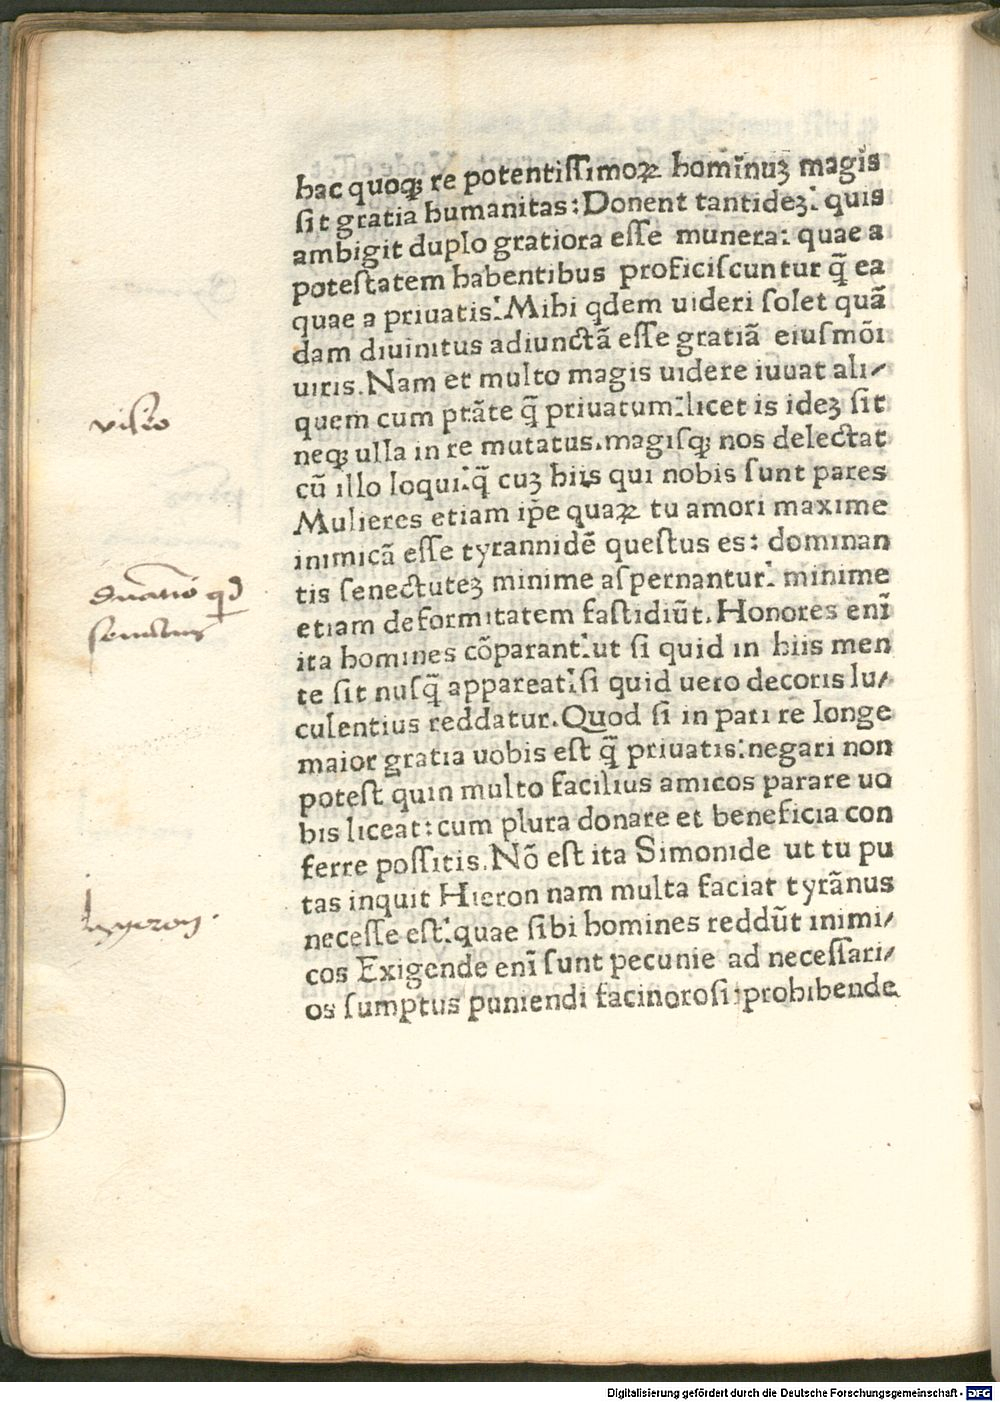 hac quoqꝫ re potentiſſimoꝝ homīnuꝫ magis
ſit gratia humanitas: Donent tantideꝫ: quis
ambigit duplo gratiora eſſe munera: quae a
poteſtatem habentibus proficiſcuntur q̄ ea
quae a priuatis: Mihi qdem uideri ſolet quā
dam diuinitus adiunctā eſſe gratiā eiuſmōi
uiris. Nam et multo magis uidere iuuat ali⸗
quem cum ptāte q̄ priuatum: licet is ideꝫ ſit
neqꝫ ulla in re mutatus. magiſqꝫ nos delectat
cū illo loqui: q̄ cuꝫ hiis qui nobis ſunt pares
Mulieres etiam ip̄e quaꝝ tu amori maxime
inimicā eſſe tyrannidē queſtus es: dominan
tis ſenectuteꝫ minime aſpernantur: minime
etiam deformitatem faſtidiūt. Honores enī
ita homines cōparant: ut ſi quid in hiis men
te ſit nuſq̄ appareat: ſi quid uero decoris lu⸗
culentius reddatur. Quod ſi in pari re longe
maior gratia uobis eſt q̄ priuatis: negari non
poteſt quin multo facilius amicos parare uo
bis liceat: cum plura donare et beneficia con
ferre poſſitis. Nō eſt ita Simonide ut tu pu
tas inquit Hieron nam multa faciat tyrānus
neceſſe eſt: quae ſibi homines reddūt inimi⸗
cos Exigende enī ſunt pecunie ad neceſſari⸗
os ſumptus puniendi facinoroſi: prohibende
viſio
Digitalisierung gefördert durch die Deutsche Forschungsgemeinschaft - DFG